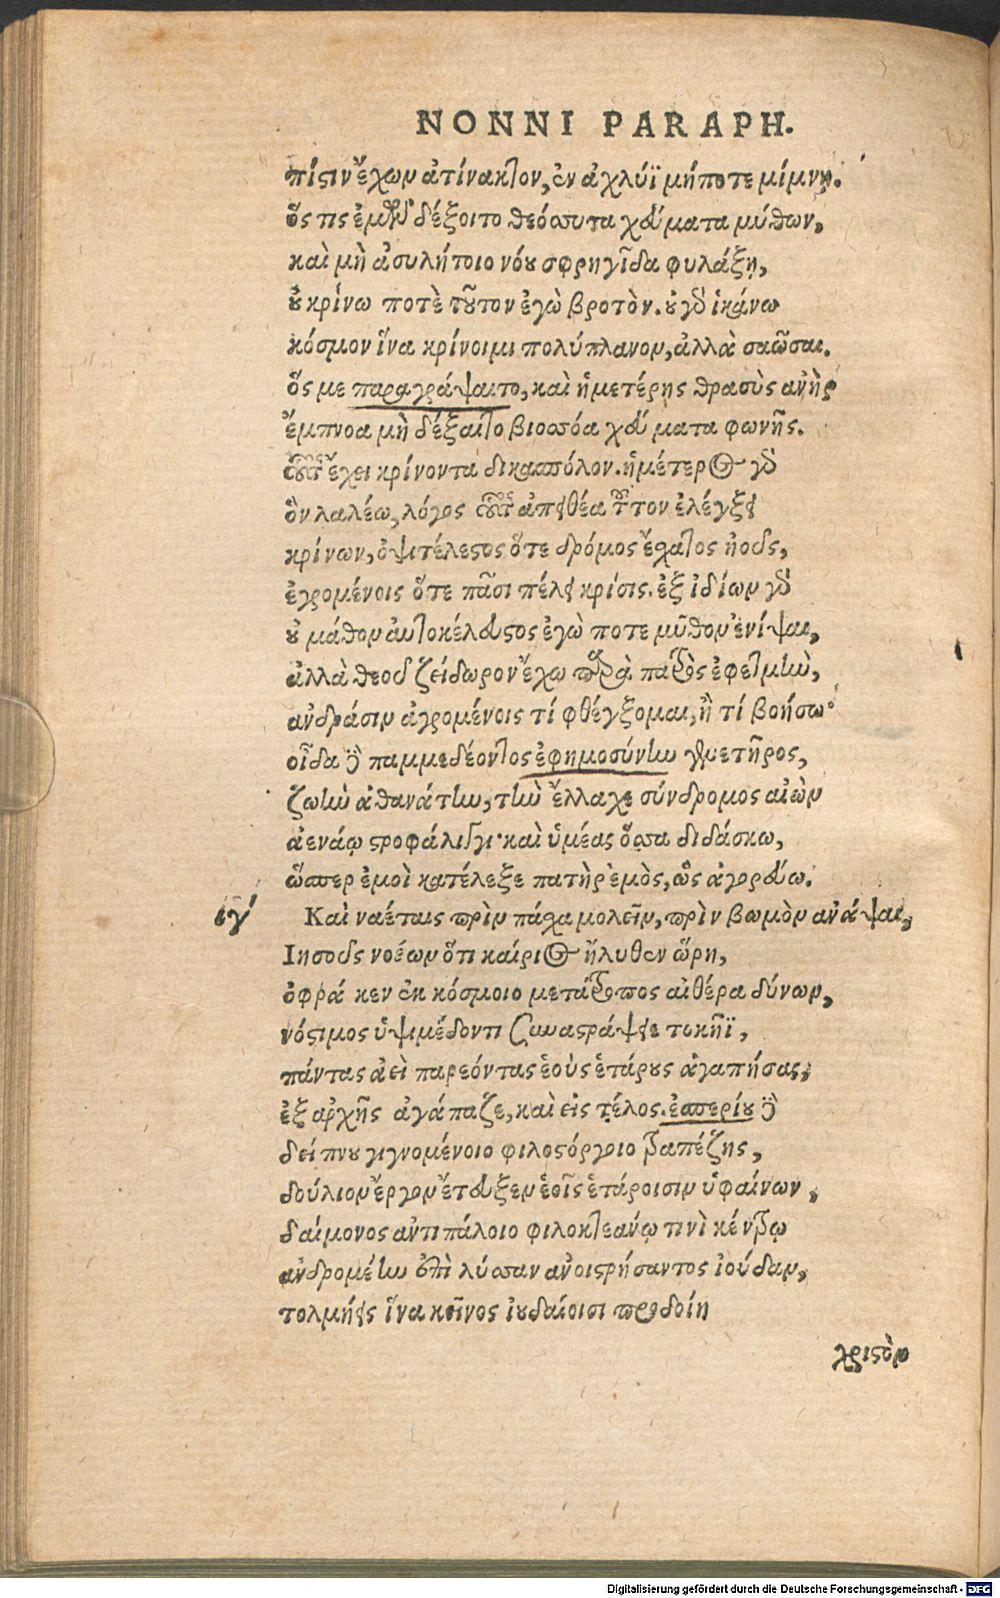 NONNI PARAPH.
πίστιν ἔχων ἀτίνακτον, ἐν ἀχλύϊ μήποτε μίμνῃ.
ὅς τις ἐμοῦ δέξοιτο θεόσσυτα χεύματα μύθων,
καὶ μὴ ἀσυλήτοιο νόου σφρηγῖδα φυλάξῃ,
οὐ κρίνω ποτὲ τοῦτον ἐγὼ βροτὸν. οὐ γὰρ ἱκάνω
κόσμον ἵνα κρίνοιμι πολύπλανον, ἀλλὰ σαῶσαι.
ὅς με παραγράψαιτο, καὶ ἡμετέρης θρασὺς ἀνὴρ
ἔμπνοα μὴ δέξαιτο βιοσσόα χεύματα φωνῆς.
οὗτος ἔχει κρίνοντα δικασπόλον. ἡμέτερος γὰρ
ὃν λαλέω, λόγος οὗτος ἀπειθέα τοῦτον ἐλέγξει
κρίνων, ὀψιτέλεστος ὅτε δρόμος ἔσχατος ἠοῦς,
ἐγρομένοις ὅτε πᾶσι πέλει κρίσις. ἐξ ἰδίων γὰρ
οὐ μάθον αὐτοκέλευστος ἐγὼ ποτε μῦθον ἐνίψαι,
ἀλλὰ θεοῦ ζείδωρον ἔχω παρὰ πατρὸς ἐφετμὴν,
ἀνδράσιν ἀγρομένοις τί φθέγξομαι, ἢ τί βοήσω·
οἶδα δὲ παμμεδέοντος ἐφημοσύνην γενετῆρος,
ζωὴν ἀθανάτην, τὴν ἔλλαχε σύνδρομος αἰὼν
ἀενάῳ στροφάλιγγι· καὶ ὑμέας ὅσσα διδάσκω,
ὥσπερ ἐμοὶ κατέλεξε πατὴρ ἐμὸς, ὣς ἀγορεύω.
ιγ΄ Καὶ ναέταις πρὶν πάσχα μολεῖν, πρὶν βωμὸν ἀνάψαι,
Ιησοῦς νοέων ὅτι καίριος ἤλυθεν ὥρη,
ὄφρα κεν ἐκ κόσμοιο μετάτροπος αἰθέρα δύνων,
νόστιμος ὑψιμέδοντι συναστράψειε τοκῆϊ,
πάντας ἀεὶ παρεόντας ἑοὺς ἑτάρους ἀγαπήσας,
ἐξ ἀρχῆς ἀγάπαζε, καὶ εἰς τέλος. ἑσπερίου δὲ
δείπνου γιγνομένοιο φιλοστόργοιο τραπέζης,
δούλιον ἔργον ἔτευξεν ἑοῖς ἑτάροισιν ὑφαίνων,
δαίμονος ἀντιπάλοιο φιλοκτεάνῳ τινὶ κέντρῳ
ἀνδρομέην ἐπὶ λύσσαν ἀνοιστρήσαντος ἰούδαν,
τολμήεις ἵνα κεῖνος ἰουδαίοισι προδοίη
χριστὸν
Digitalisierung gefördert durch die Deutsche Forschungsgemeinschaft - DFG